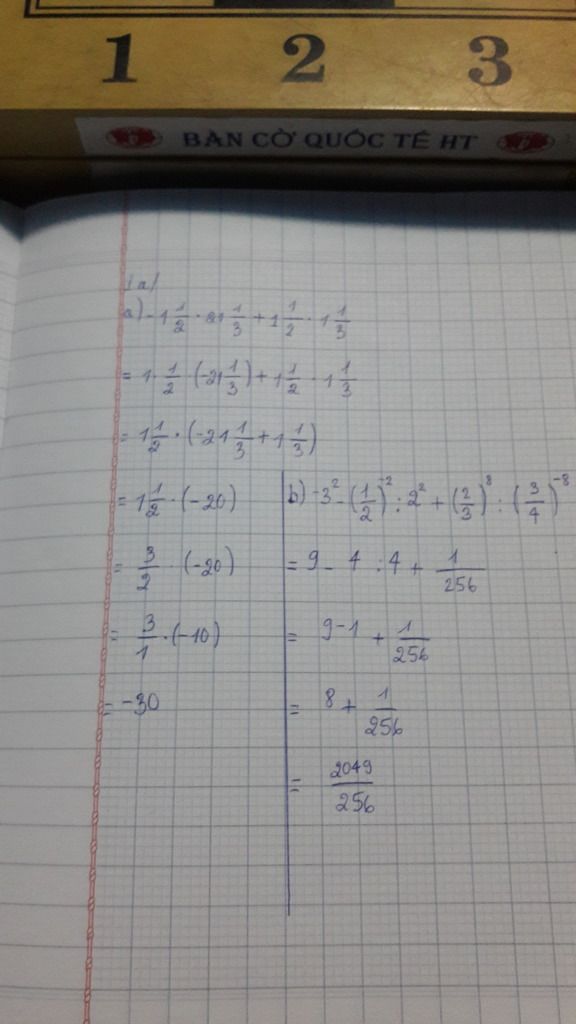 1 2 3
BÀN CỜ QUỐC TẾ HT
1a/
a) -1 1/2 · 21 1/3 + 1 1/2 · 1 1/3
= 1 · 1/2 · (-21 1/3) + 1 1/2 · 1 1/3
= 1 1/2 · (-21 1/3 + 1 1/3)
= 1 1/2 · (-20)
= 3/2 · (-20)
= 3/1 · (-10)
= -30
b) -3² - (1/2)⁻² : 2² + (2/3)⁸ : (3/4)⁻⁸
= 9 - 4 : 4 + 1/256
= 9 - 1 + 1/256
= 8 + 1/256
= 2049/256